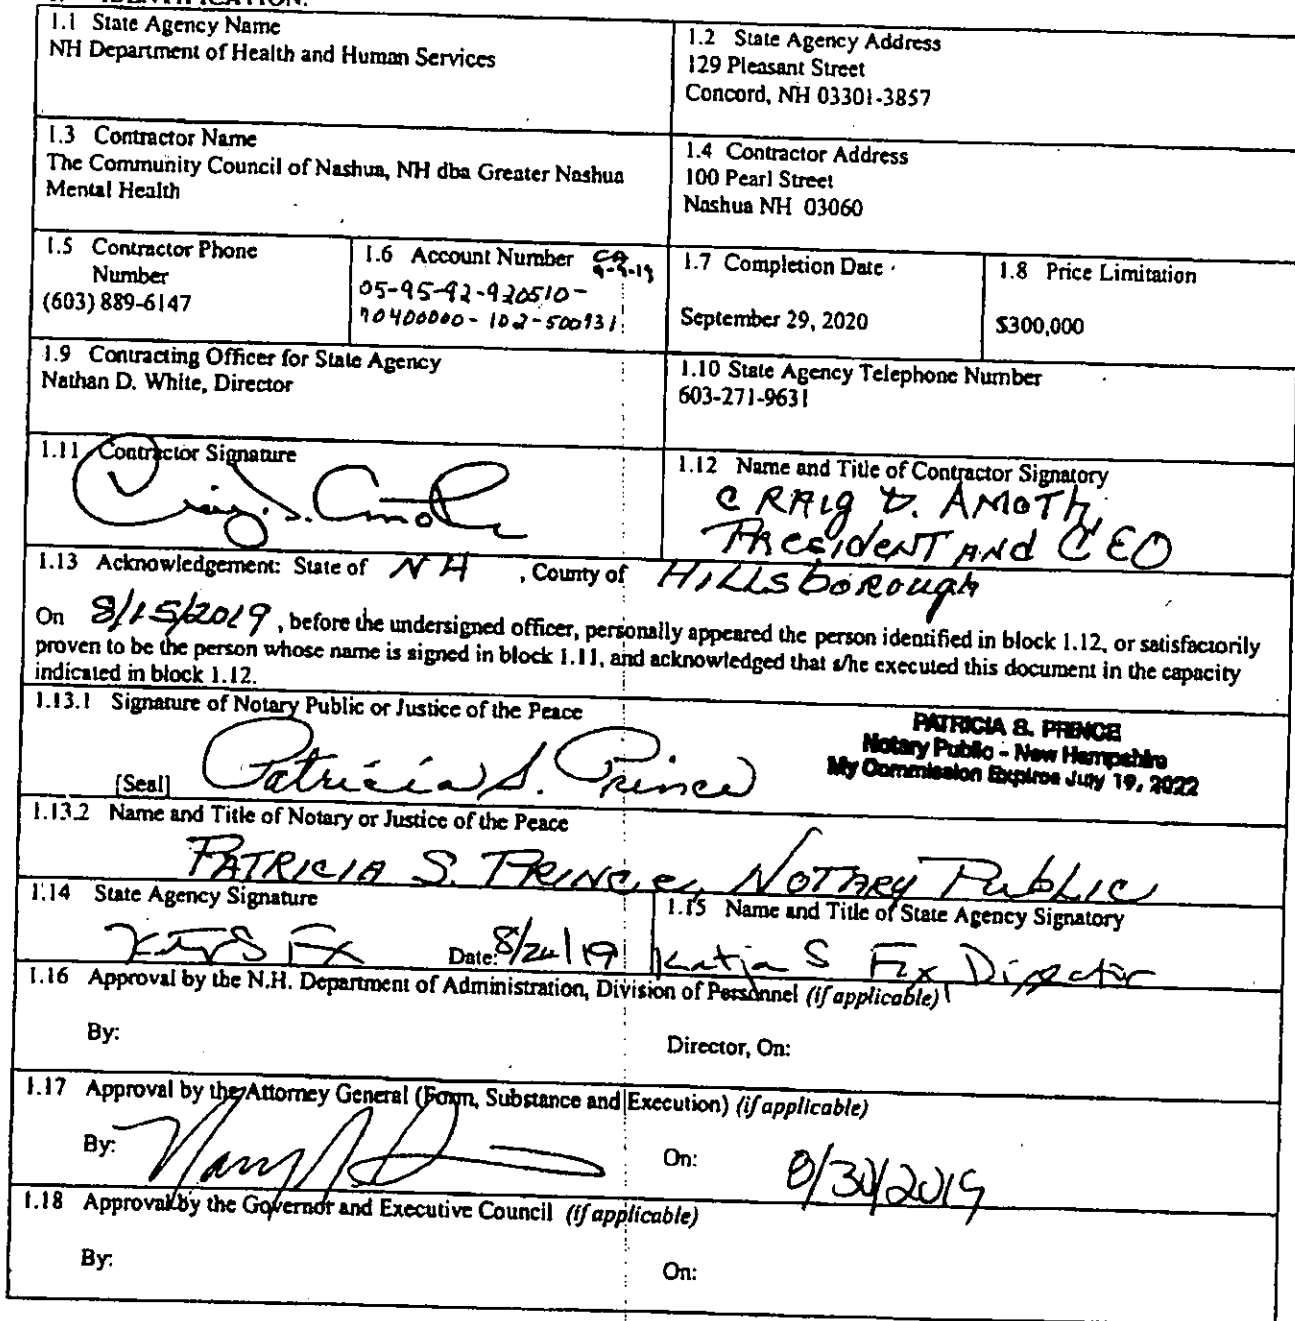 IDENTIFICATION.
1.1 State Agency Name
NH Department of Health and Human Services
1.2 State Agency Address
129 Pleasant Street
Concord, NH 03301-3857
1.3 Contractor Name
The Community Council of Nashua, NH dba Greater Nashua
Mental Health
1.4 Contractor Address
100 Pearl Street
Nashua NH 03060
1.5 Contractor Phone
Number
(603) 889-6147
1.6 Account Number CA
9-9-19
05-95-92-920510-
70400000-102-500731
1.7 Completion Date
September 29, 2020
1.8 Price Limitation
$300,000
1.9 Contracting Officer for State Agency
Nathan D. White, Director
1.10 State Agency Telephone Number
603-271-9631
1.11 Contractor Signature
1.12 Name and Title of Contractor Signatory
CRAIg D. AMOTH,
PResideNT ANd CEO
1.13 Acknowledgement: State of NH , County of HILLSboRough
On 8/15/2019 , before the undersigned officer, personally appeared the person identified in block 1.12, or satisfactorily
proven to be the person whose name is signed in block 1.11, and acknowledged that s/he executed this document in the capacity
indicated in block 1.12.
1.13.1 Signature of Notary Public or Justice of the Peace
PATRICIA S. PRINCE
Notary Public - New Hampshire
My Commission Expires July 19, 2022
[Seal] Patricia S. Prince
1.13.2 Name and Title of Notary or Justice of the Peace
PATRICIA S. PRINCE, NOTARY PubLIC
1.14 State Agency Signature
Date: 8/20/19
1.15 Name and Title of State Agency Signatory
Katja S Fox Director
1.16 Approval by the N.H. Department of Administration, Division of Personnel (if applicable)
By:
Director, On:
1.17 Approval by the Attorney General (Form, Substance and Execution) (if applicable)
By:
On: 8/30/2019
1.18 Approval by the Governor and Executive Council (if applicable)
By:
On: